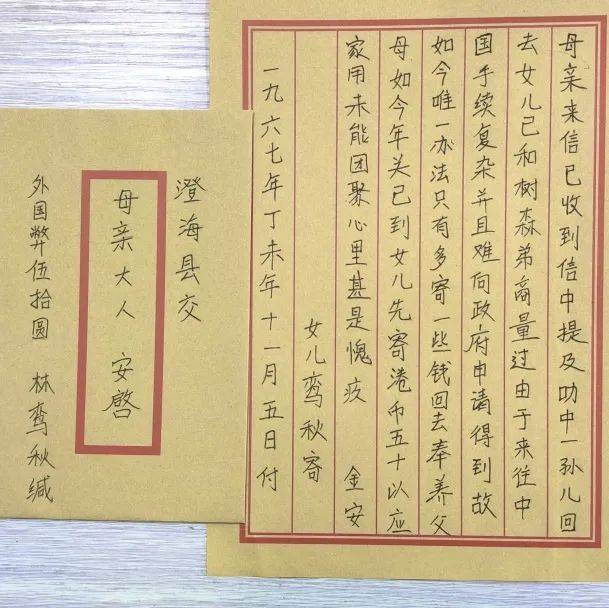 母亲来信已收到信中提及叻中一孙儿回
去女儿已和树森弟商量过由于来往中
国手续复杂并且难向政府申请得到故
如今唯一办法只有多寄一些钱回去奉养父
母如今年关已到女儿先寄港币五十以应
家用未能团聚心里甚是愧疚 金安
女儿鸾秋寄
一九六七年丁未年十一月五日付
澄海县交
母亲大人 安啓
外国弊伍拾圆 林鸾秋缄